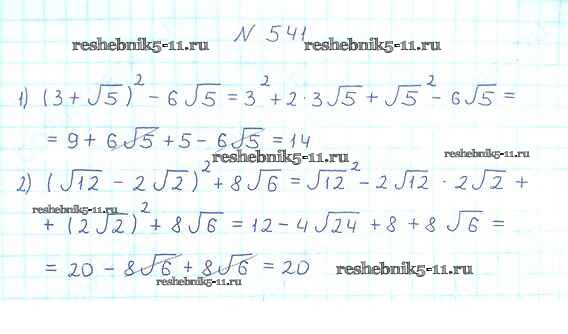 N 541
reshebnik5-11.ru reshebnik5-11.ru
1) (3 + √5)² - 6√5 = 3² + 2 · 3√5 + √5² - 6√5 =
= 9 + 6√5 + 5 - 6√5 = 14
reshebnik5-11.ru reshebnik5-11.ru
2) (√12 - 2√2)² + 8√6 = √12² - 2√12 · 2√2 +
reshebnik5-11.ru
+ (2√2)² + 8√6 = 12 - 4√24 + 8 + 8√6 =
= 20 - 8√6 + 8√6 = 20 reshebnik5-11.ru
reshebnik5-11.ru